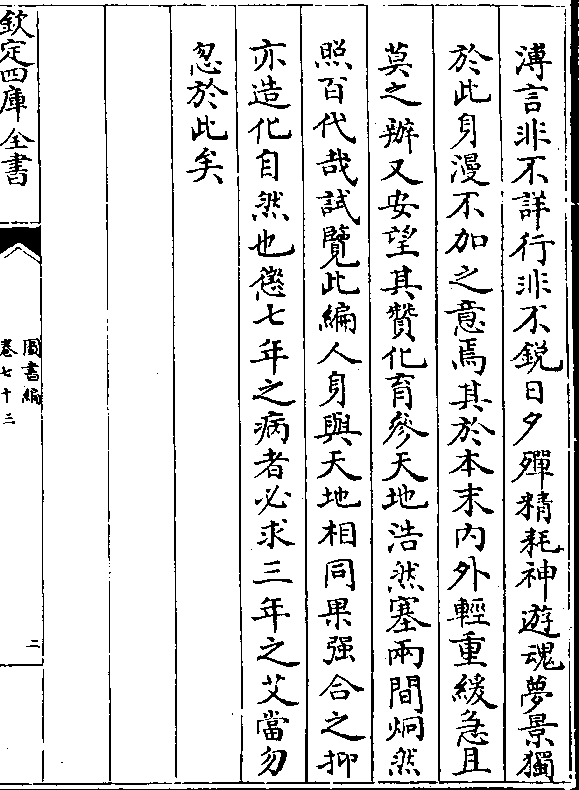 溥言非不詳行非不銳日夕殫精耗神遊魂夢景獨
於此身漫不加之意焉其於本末内外輕重緩急且
莫之辦又安望其贊化育參天地浩然塞兩間炯然
照百代哉試覽此編人身與天地相同果强合之抑
亦造化自然也懲七年之病者必求三年之艾當勿
忽於此矣
欽定四庫全書
圖書編
卷七十二
二